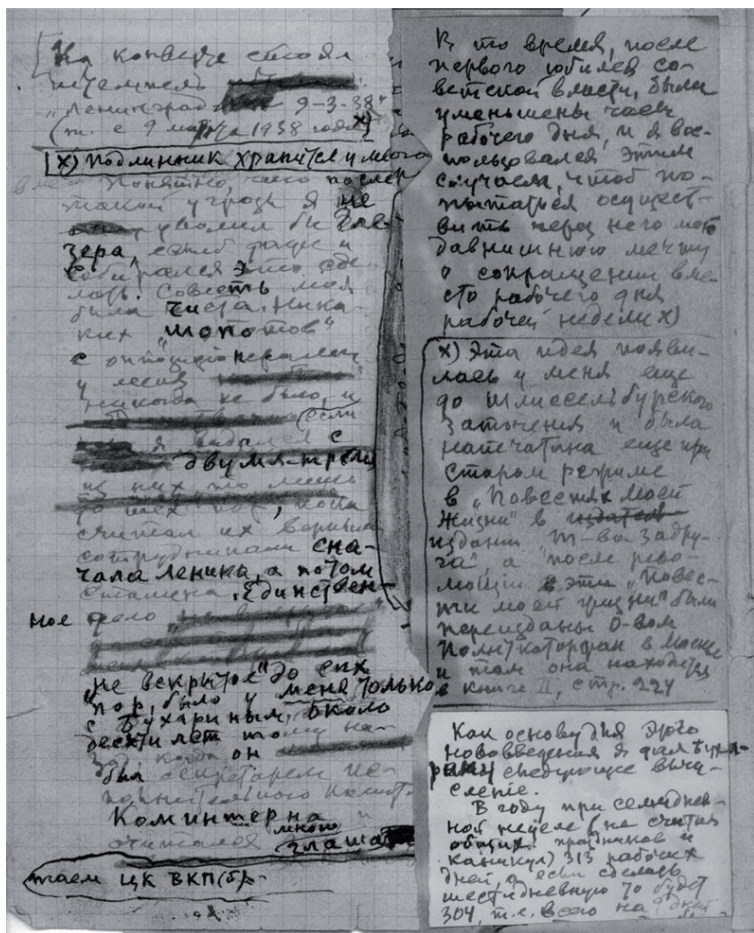 На конверте стоял
штемпель
„Ленинград 9-3-38"
(т. е 9 марта 1938 года х)
х) Подлинник хранится у меня
Понятно, что после
такой угрозы я не
уволил бы Гла-
зера, если б даже и
собирался это сде-
лать. Совесть моя
была чиста. Ника-
ких „шопотов"
с оппозиционерами
у меня
никогда не было, и
(если
я виделся с
двумя-тремя
из них то лишь
до тех пор, пока
считал их верными
сотрудниками сна-
чала Ленина, а потом
Сталина. Единствен-
ное дело
„не вскрытое" до сих
пор, было у меня только
с Бухариным, около
десяти лет тому на-
зад, когда он
был секретарем Ис-
полнительного Комит.
Коминтерна и
считался мною
глаша-
таем ЦК ВКП(б).
В то время, после
первого юбилея со-
ветской власти, были
уменьшены часы
рабочего дня, и я вос-
пользовался этим
случаем, чтоб по-
пытаться осущест-
вить через него мою
давнишнюю мечту
о сокращении вме-
сто рабочего дня
рабочей недели х)
х) Эта идея появи-
лась у меня еще
до шлиссельбургского
заточения и была
напечатана еще при
старом режиме
в „Повестях моей
жизни" в
издании т-ва Задру-
га", а после рево-
люции эти „Повес-
ти моей жизни" были
переизданы О-вом
Политкаторжан в Москве
и там она находится
в книге II, стр. 224
Как основу для этого
нововведения я дал Буха-
рину следующее вычи-
сление.
В году при семиднев-
ной неделе (не считая
общих праздников и
каникул) 313 рабочих
дней, а если сделать
шестидневную то будет
304, т.е. всего на 9 дней